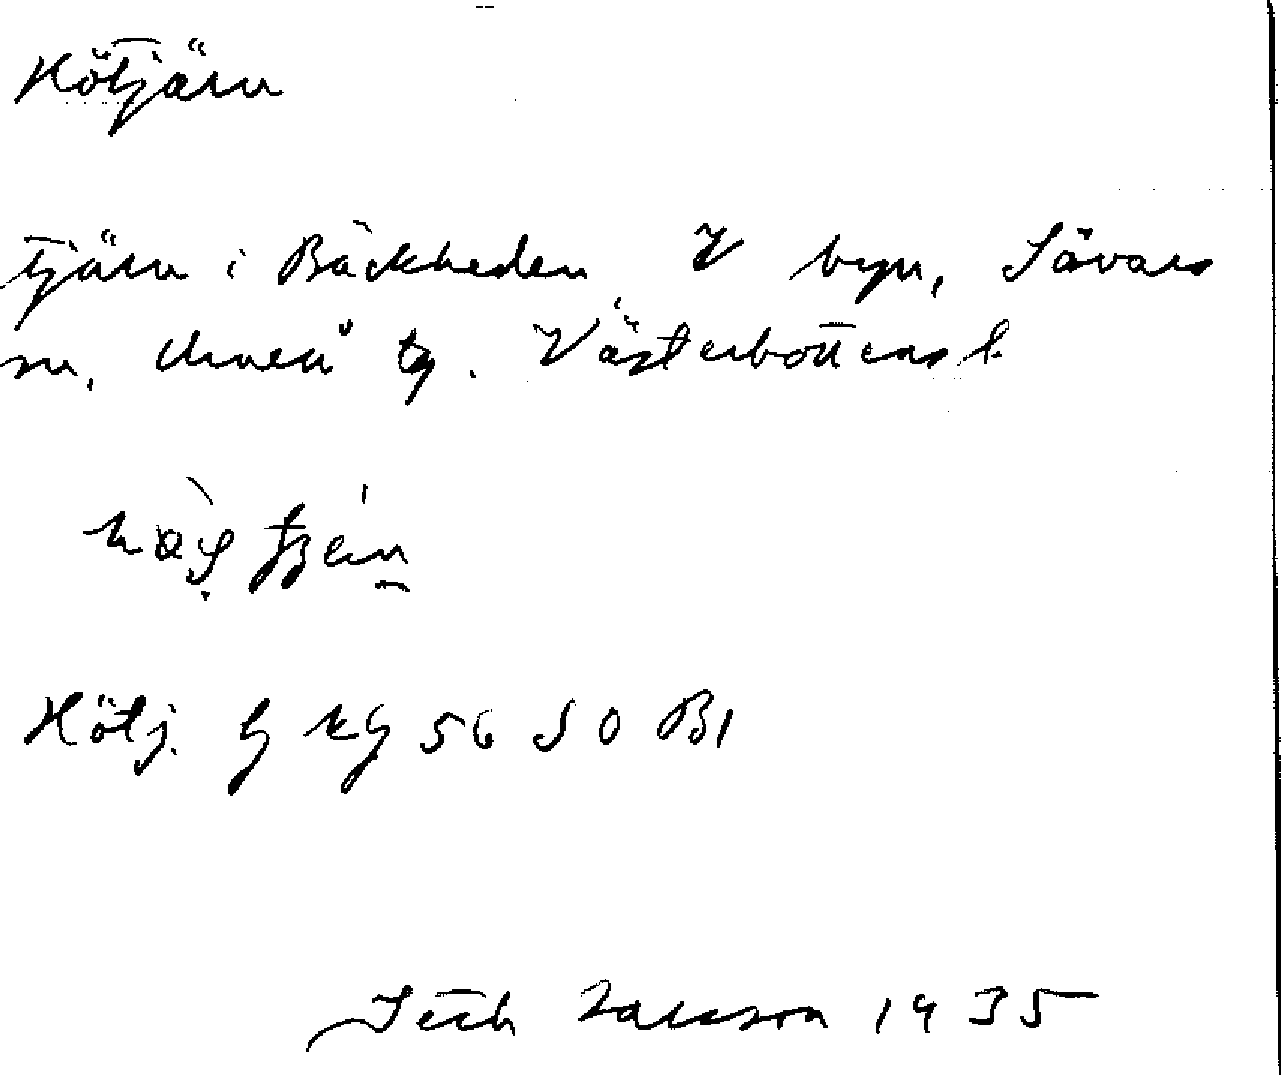 Kötjärn
tjärn i Bäckheden V byn, Sävars
sn, Umeå tg. Västerbottens l.
Kötj. G kg 56 S O B1
Seth Larsson 1935